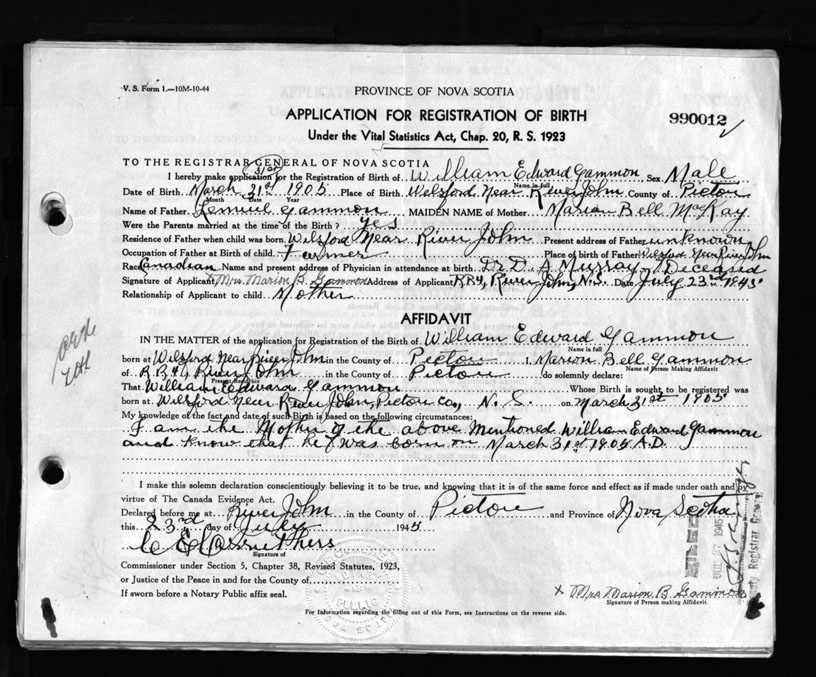 V. S. Form 1.—10M-10-44
PROVINCE OF NOVA SCOTIA
APPLICATION FOR REGISTRATION OF BIRTH
990012
Under the Vital Statistics Act, Chap. 20, R. S. 1923
TO THE REGISTRAR GENERAL OF NOVA SCOTIA
31st
I hereby make application for the Registration of Birth of William Edward Gammon Sex Male
Name in full
Date of Birth March 31st 1905 Place of Birth Welsford Near River John County of Pictou
Month Date Year
Name of Father Lemuel Gammon MAIDEN NAME of Mother Marion Bell MacKay
Were the Parents married at the time of the Birth? yes
Residence of Father when child was born Wilsford Near River John Present address of Father unknown
Occupation of Father at Birth of child Farmer Place of birth of Father Wilsford Near River John
Race Canadian Name and present address of Physician in attendance at birth Dr. D. A Murray, Deceased
Signature of Applicant Mrs. Marion B. Gammon Address of Applicant R R 4, River John, N.S. Date July 23rd 1945
Relationship of Applicant to child Mother
AFFIDAVIT
IN THE MATTER of the application for Registration of the Birth of William Edward Gammon
Name in full
born at Wilsford Near River John in the County of Pictou I, Marion Bell Gammon
Name of Person Making Affidavit
of R R #4 River John in the County of Pictou do solemnly declare:
Present Residence
That William Edward Gammon Whose Birth is sought to be registered was
born at Welsford Near River John, Pictou Co., N. S. on March 31st 1905
My knowledge of the fact and date of such Birth is based on the following circumstances:
I am the Mother of the above Mentioned William Edward Gammon
and know that he was born on March 31st 1905 A.D.
I make this solemn declaration conscientiously believing it to be true, and knowing that it is of the same force and effect as if made under oath and by
virtue of The Canada Evidence Act.
Declared before me at River John in the County of Pictou and Province of Nova Scotia
this 23rd day of July 1945
C E Carruthers
Signature of
Commissioner under Section 5, Chapter 38, Revised Statutes, 1923,
or Justice of the Peace in and for the County of
If sworn before a Notary Public affix seal.
x Mrs Marion B. Gammon
Signature of Person making Affidavit
For Information regarding the filling out of this Form, see Instructions on the reverse side.